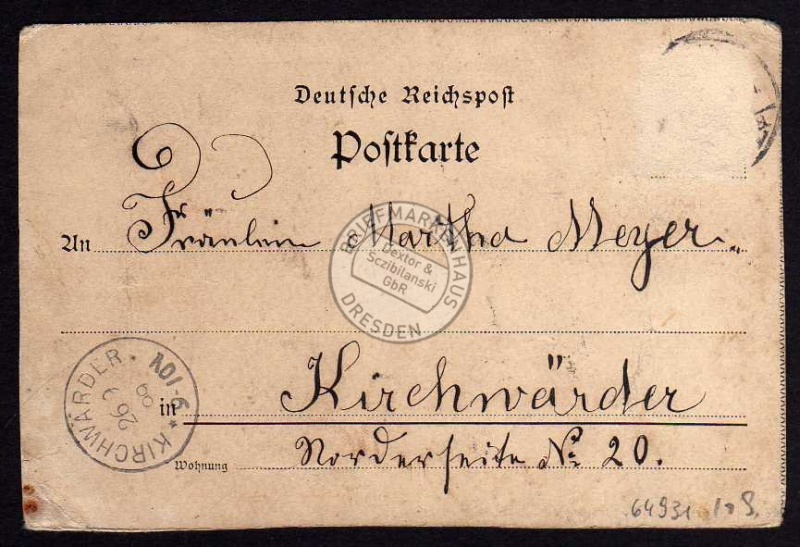 Deutsche Reichspost
Postkarte
An Fräulein Martha Meyer.
BRIEFMARKENHAUS
Dextor &
Sczibilanski
GbR
DRESDEN
in Kirchwärder
Wohnung Norderseite No. 20.
* KIRCHWÄRDER.
26 3
64931